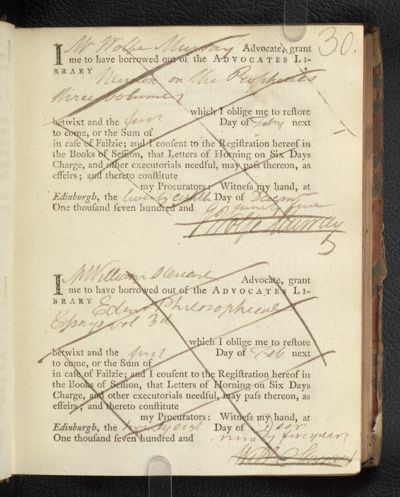 30.
I Mr Wolfe Murray Advocate, grant
me to have borrowed out of the ADVOCATES LI-
BRARY
Newton on the Prophecies
three volumes
which I oblige me to reſtore
betwixt and the first Day of next
to come, or the Sum of
in caſe of Failzie; and I conſent to the Regiſtration hereof in
the Books of Seſſion, that Letters of Horning on Six Days
Charge, and other executorials needful, may paſs thereon, as
effeirs; and thereto conſtitute
my Procurators: Witneſs my hand, at
Edinburgh, the twenty eighth Day of
One thouſand ſeven hundred and ninety five
Wolfe Murray
5
I Mr William Advocate, grant
me to have borrowed out of the ADVOCATES LI-
BRARY
Edinr Philosophical
Essays vol 3d
which I oblige me to reſtore
betwixt and the first Day of Feb next
to come, or the Sum of
in caſe of Failzie; and I conſent to the Regiſtration hereof in
the Books of Seſſion, that Letters of Horning on Six Days
Charge, and other executorials needful, may paſs thereon, as
effeirs; and thereto conſtitute
my Procurators: Witneſs my hand, at
Edinburgh, the Day of
One thouſand ſeven hundred and ninety five years